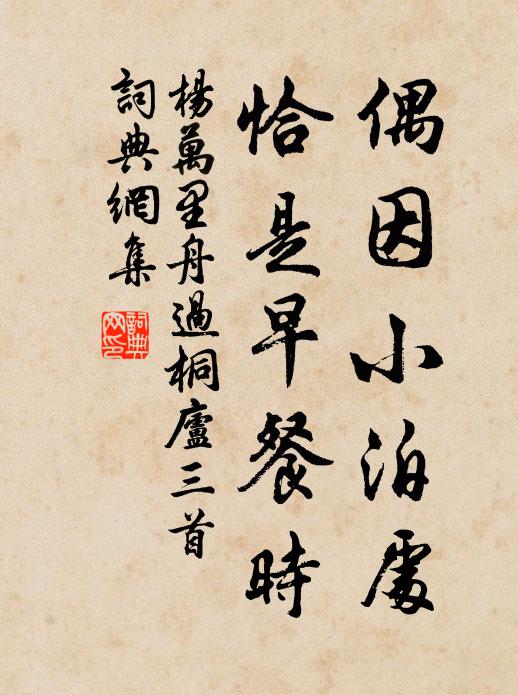 偶因小泊處
恰是早餐時
楊萬里舟過桐廬三首
詞典網集
詞典
网印